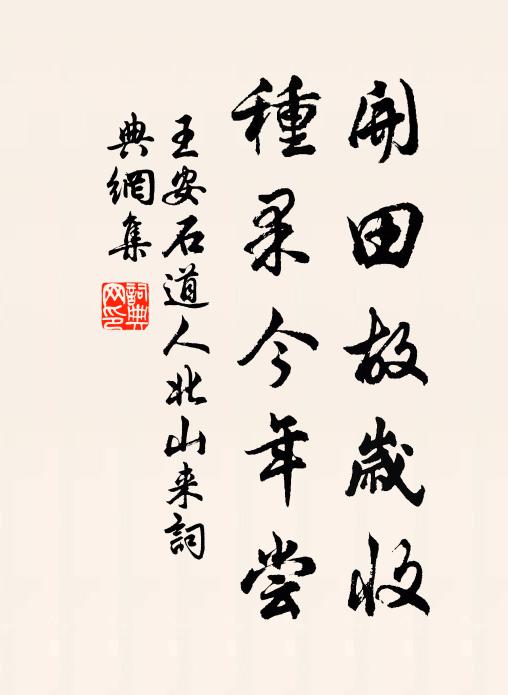 開田故歲收
種果今年嘗
王安石道人北山来詞
典網集
詞典網印